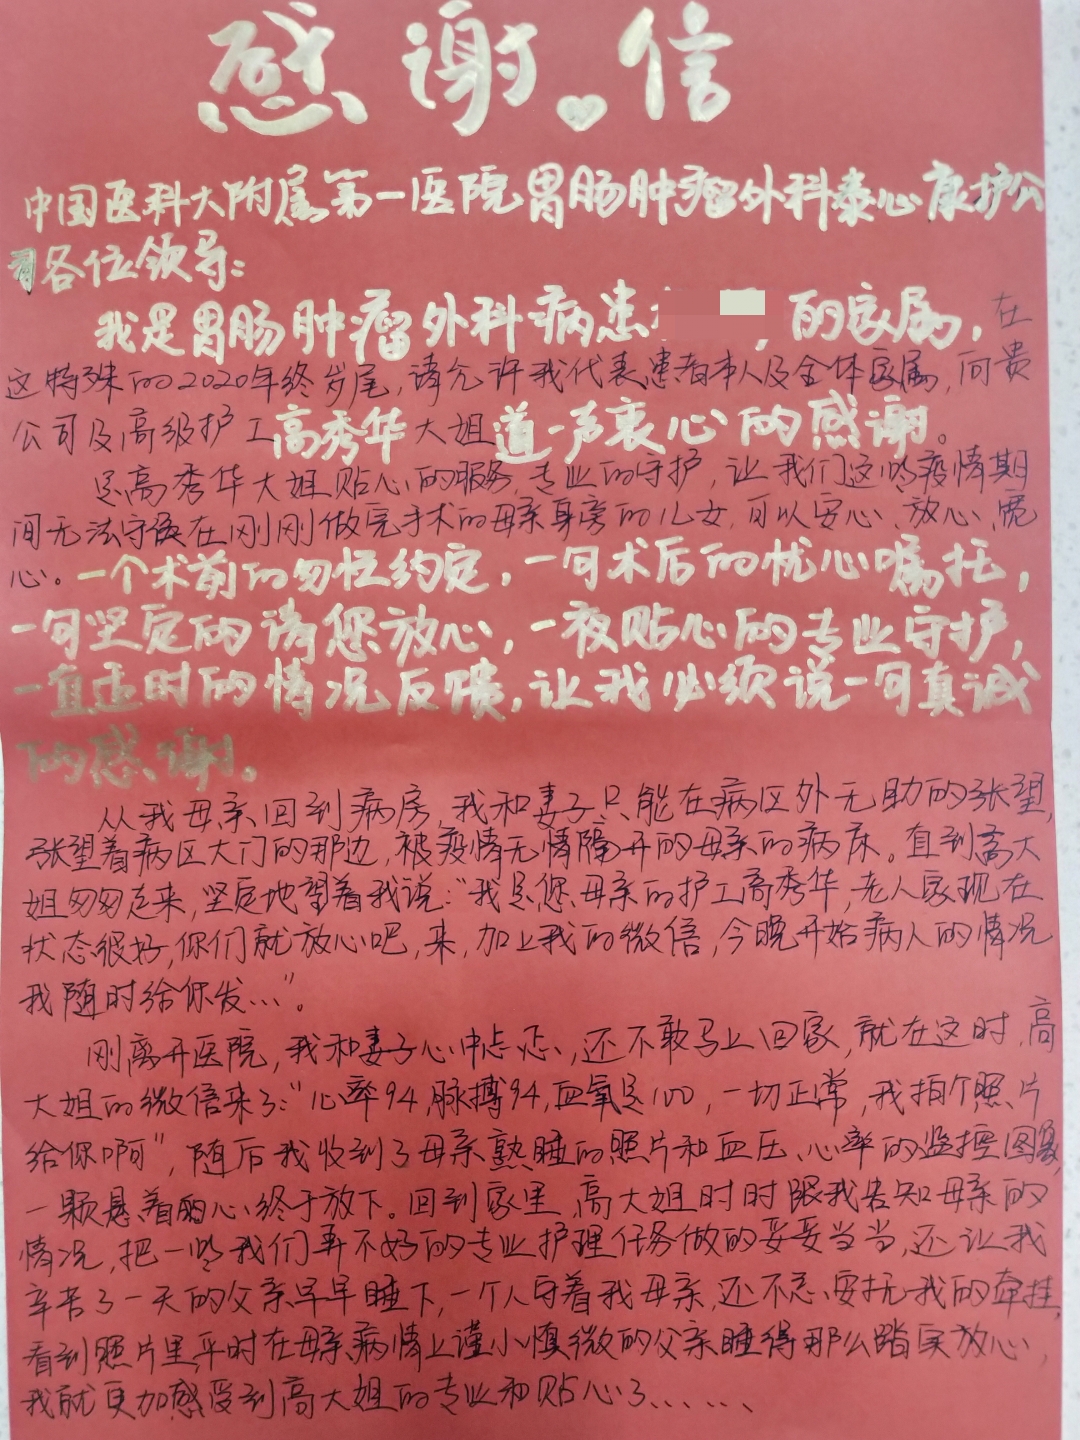 感谢信
中国医科大附属第一医院胃肠肿瘤外科泰心康护公
司各位领导:
我是胃肠肿瘤外科病患 的家属,在
这特殊的2020年终岁尾,请允许我代表患者本人及全体家属,向贵
公司及高级护工高秀华大姐道一声衷心的感谢。
是高秀华大姐贴心的服务,专业的守护,让我们这些疫情期
间无法守候在刚刚做完手术的母亲身旁的儿女,可以安心、放心、暖
心。一个术前的匆忙约定,一句术后的忧心嘱托,
一句坚定的请您放心,一夜贴心的专业守护,
一直适时的情况反馈,让我必须说一句真诚
的感谢。
从我母亲回到病房,我和妻子只能在病区外无助的张望,
张望着病区大门的那边,被疫情无情隔开的母亲的病床。直到高大
姐匆匆走来,坚定地望着我说:“我是您母亲的护工高秀华,老人家现在
状态很好,你们就放心吧,来,加上我的微信,今晚开始病人的情况
我随时给你发…”。
刚离开医院,我和妻子心中忐忑,还不敢马上回家,就在这时,高
大姐的微信来了:“心率94,脉搏94,血氧是100,一切正常,我拍个照片
给你啊”,随后我收到了母亲熟睡的照片和血压、心率的监控图象,
一颗悬着的心终于放下。回到家里,高大姐时时跟我告知母亲的
情况,把一些我们再不好的专业护理任务做的妥妥当当,还让我
辛苦了一天的父亲早早睡下,一个人守着我母亲,还不忘安抚我的牵挂,
看到照片里平时在母亲病情上谨小慎微的父亲睡得那么踏实放心,
我就更加感受到高大姐的专业和贴心了……